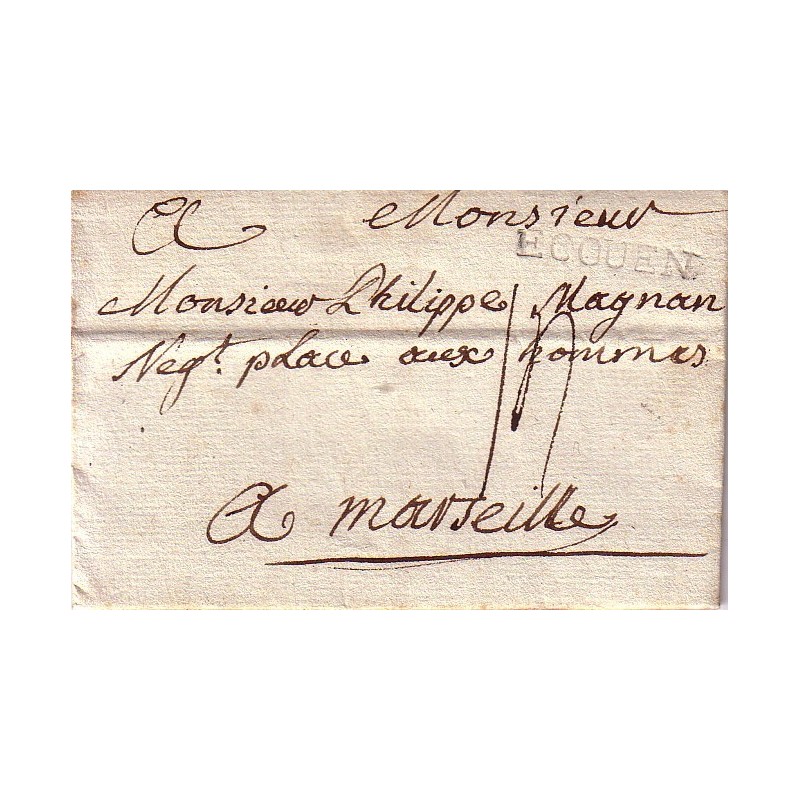 A Monsieur
ECOUEN
Monsieur Philippe Magnan
Neg.t place aux hommes
A marseille